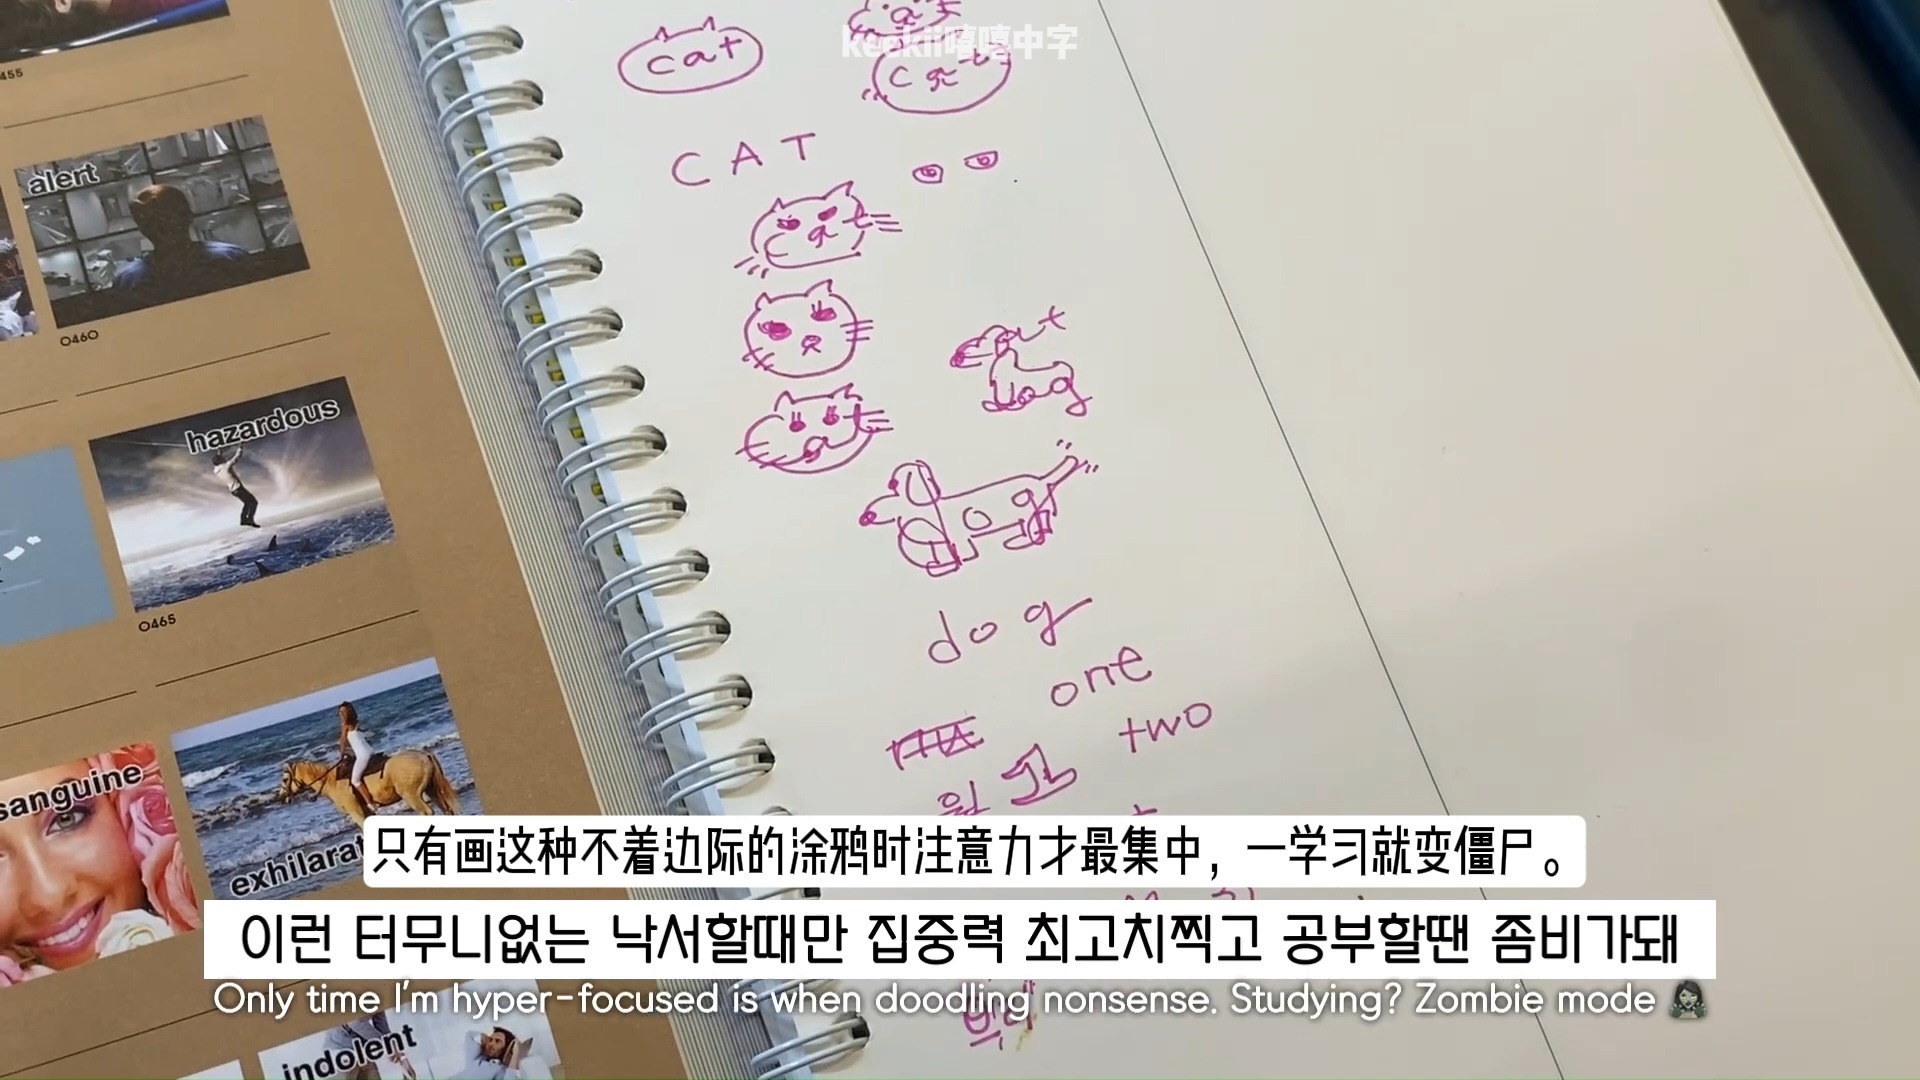 keekii嘻嘻中字
cat
cat
CAT
0455
alert
0460
hazardous
0465
dog
one
two
원
sanguine
exhilarat
只有画这种不着边际的涂鸦时注意力才最集中，一学习就变僵尸。
이런 터무니없는 낙서할때만 집중력 최고치찍고 공부할땐 좀비가돼
Only time I'm hyper-focused is when doodling nonsense. Studying? Zombie mode
indolent